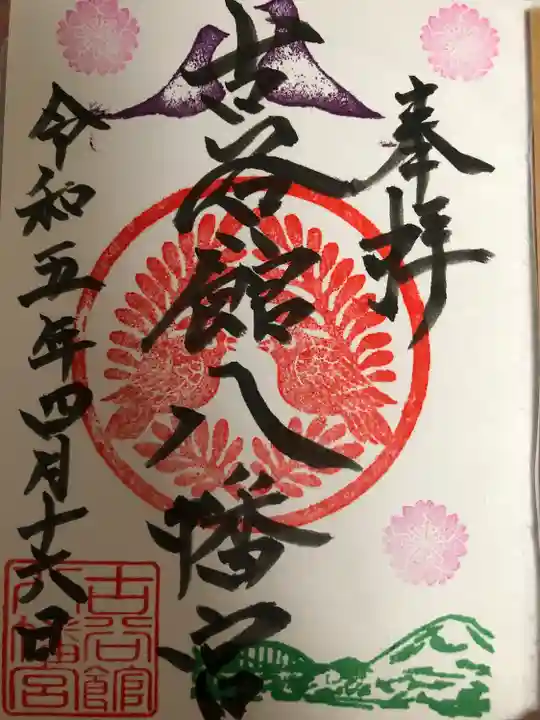 奉拝
古谷館八幡宮
令和五年四月十六日
古谷館
八幡宮